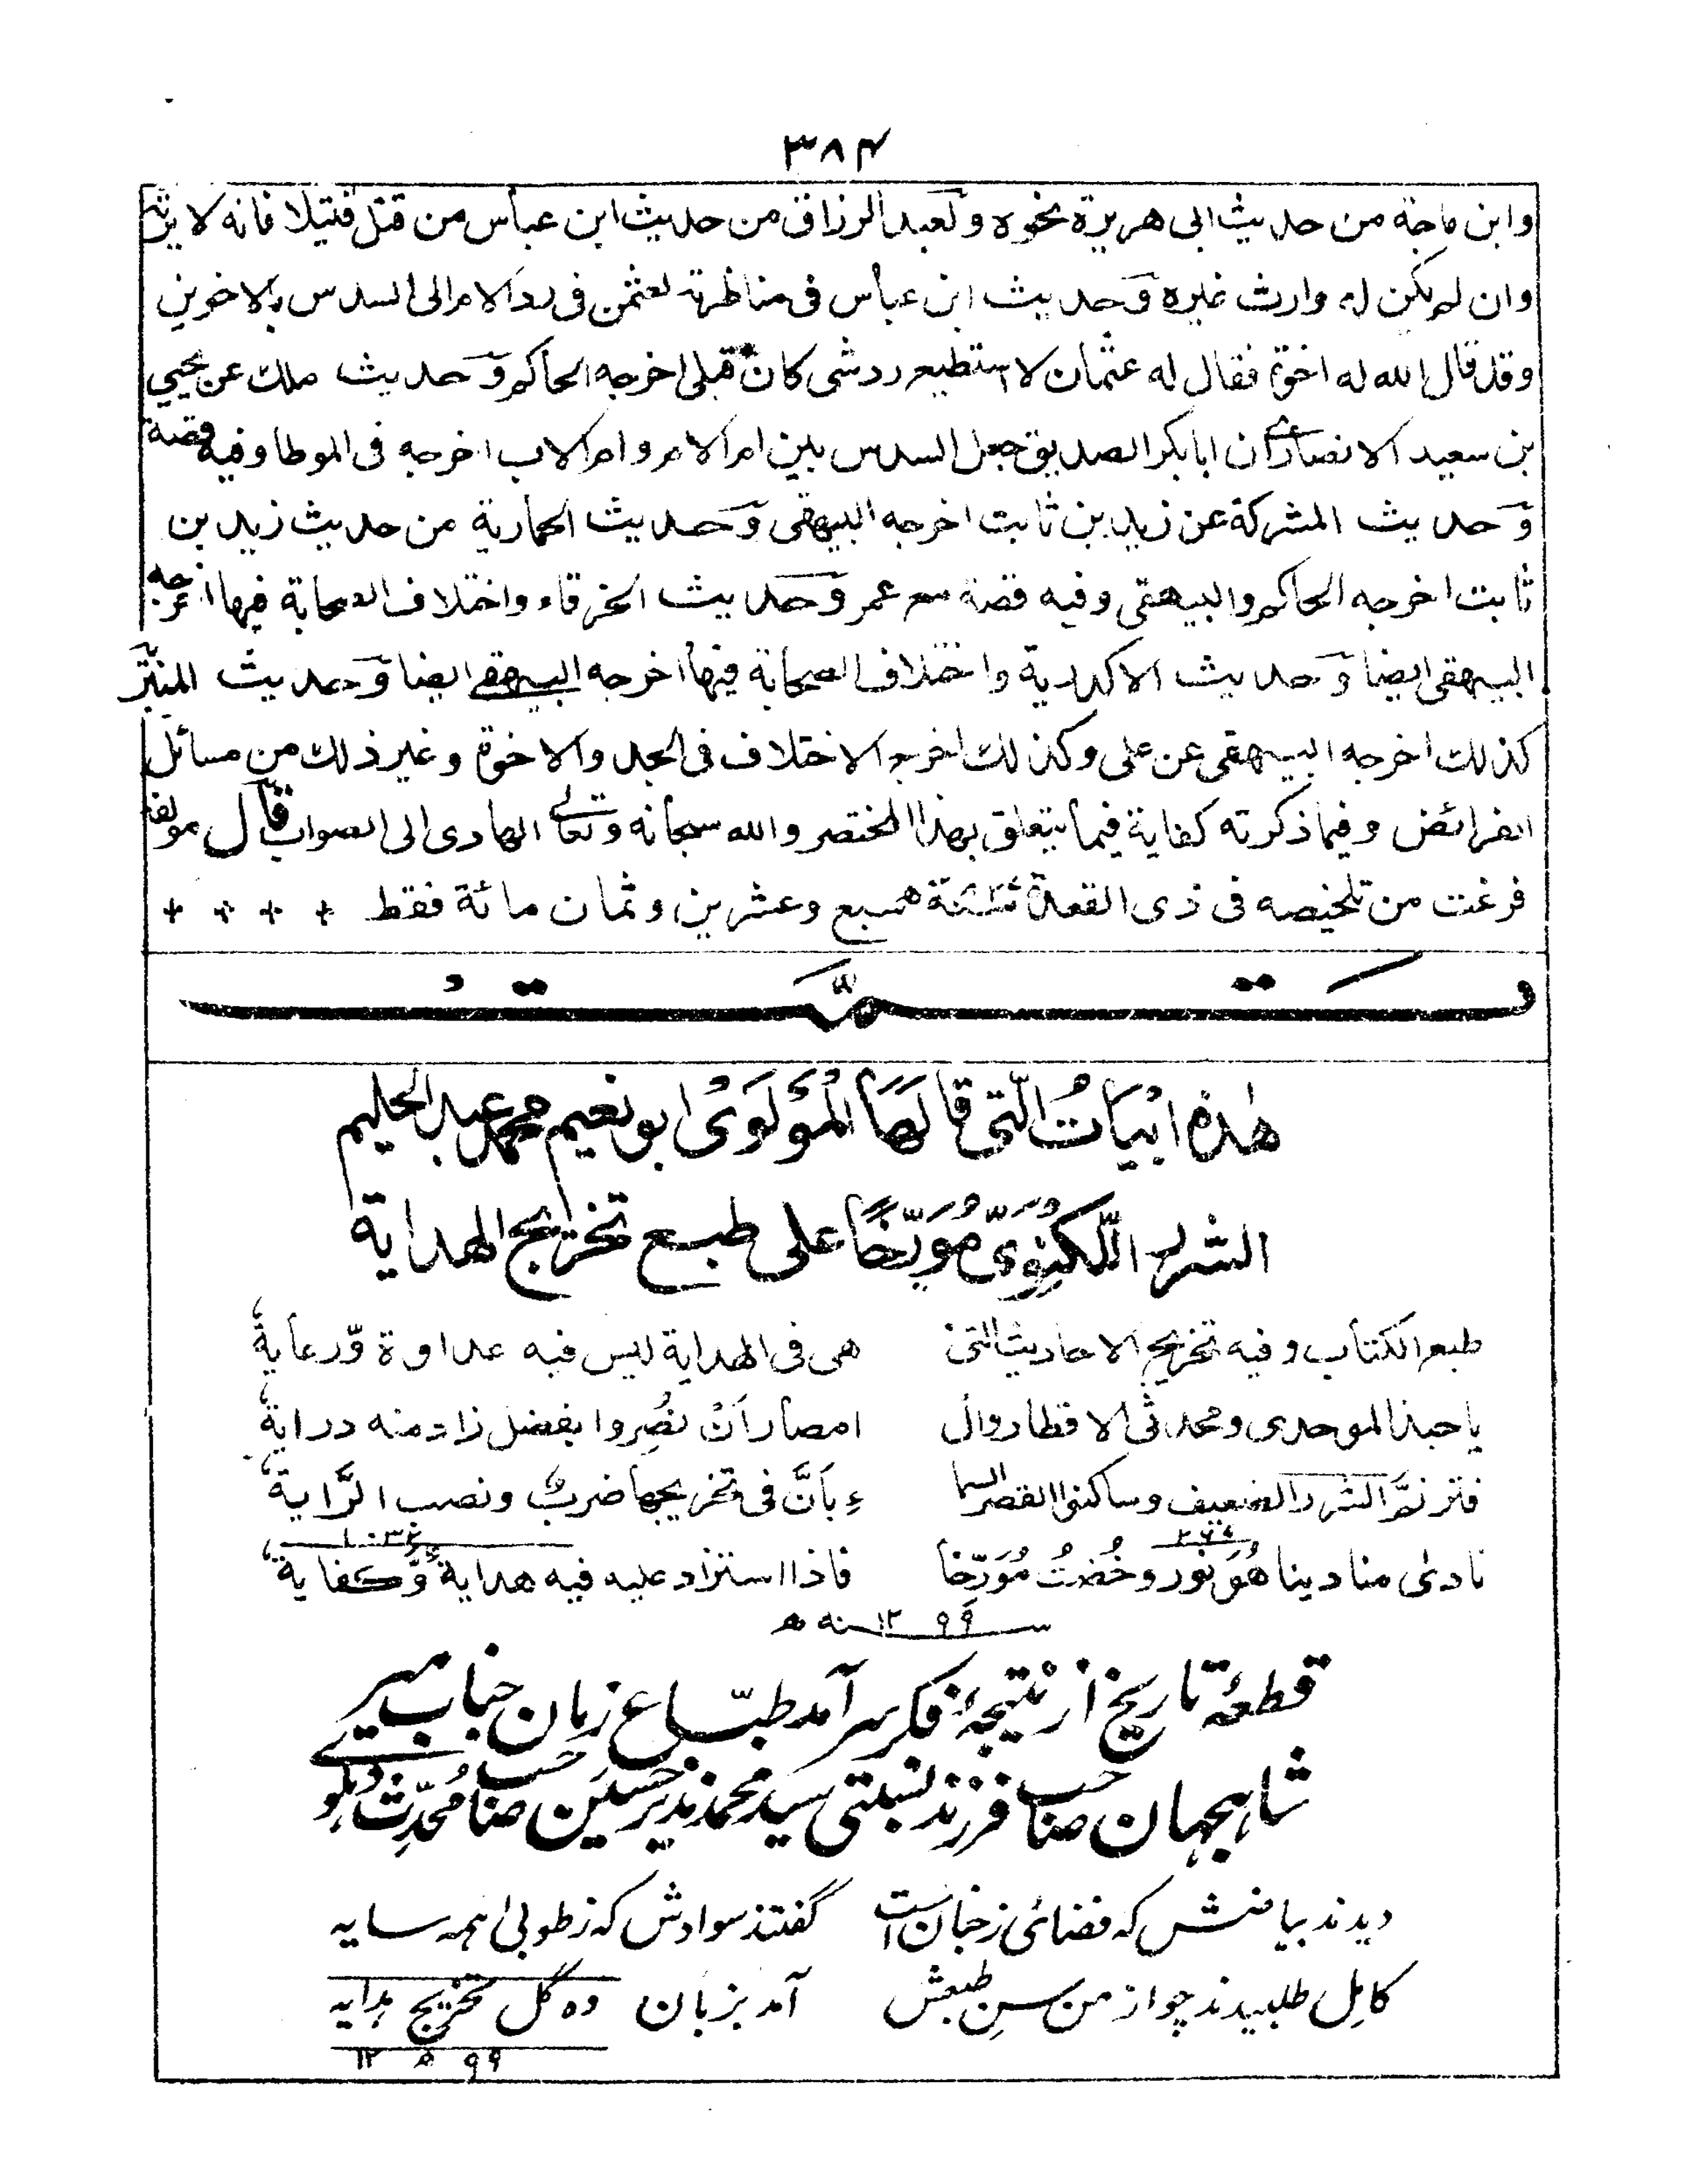 ٣٨٤
وابن ماجة من حديث ابى هريرة نحوه ولعبد الرزاق من حديث ابن عباس من قتل قتيلا فانه لا يرثه
وان لم يكن له وارث غيره وحديث ابن عباس فى مناظرته لعثمن فى رد الام الى السدس بالاخوين
وقد قال الله له اخوة فقال له عثمان لا استطيع رد شى كان قبلى اخرجه الحاكم وحديث ملك عن يحيى
بن سعيد الانصارى ان ابا بكر الصديق جعل السدس بين ام الام وام الاب اخرجه فى الموطا وفيه قصة
وحديث المشركة عن زيد بن ثابت اخرجه البيهقى وحديث الحمارية من حديث زيد بن
ثابت اخرجه الحاكم والبيهقى وفيه قصة مع عمر وحديث الخرقاء واختلاف الصحابة فيها اخرجه
البيهقى ايضا وحديث الاكدرية واختلاف الصحابة فيها اخرجه البيهقے ايضا وحديث المنبر
كذلك اخرجه البيهقى عن على وكذلك اخرج الاختلاف فى الجد والاخوة وغير ذلك من مسائل
الفرائض وفيما ذكرته كفاية فيما يتعلق بهذا المختصر والله سبحانه وتعالے الهادى الى الصواب قال مولفه
فرغت من تلخيصه فى ذى القعدة سنة سبع وعشرين وثمان مائة فقط
وتمت
هٰذه ابْيَاتُ الّتى قالَهَا المُؤلَوىُ ابو نعيم محمد عبد الحليم
الشرر اللّكنوىّ مُورّخًا على طبع تخريج الهداية
طبع الكتاب وفيه تخريج الاحاديث التى
هى فى الهداية ليس فيه عداوة وّرعايةٌ
ياحبذا الموحدى ومحدثى الاقطار وال
امصار اَنْ نُصِروا بفضل زاد منه درايةٌ
فترنمَّ الشرر الضعيف وساكنوا القصر السما
ءِ بَاَنَّ فى تخريجها ضربٌ ونصب الرَّايةٌ
نادىٰ منادينا هُوَ نور وخُضتُ مُوَرّخا
فاذا استزاد عليه فيه هدايةٌ وَّكفايةٌ
١٢٩٩ سنه ھ
قطعۂ تاریخ از نتیجۂ فکر سرآمد طبّاع زمان جناب میر
شاہجہان صاحب فرزند نسبتی سید محمد نذیر حسین صاحب مُحدِّث دہلوے
دیدند بیاضش کہ فضائی ز جنان است
گفتند سوادش کہ ز طوبیٰ ہمہ سایہ
کامِل طلبیدند چو از من سنِ طبعش
آمد بزبان وہ گل تخریج ہدایہ
١٢٩٩ ھ